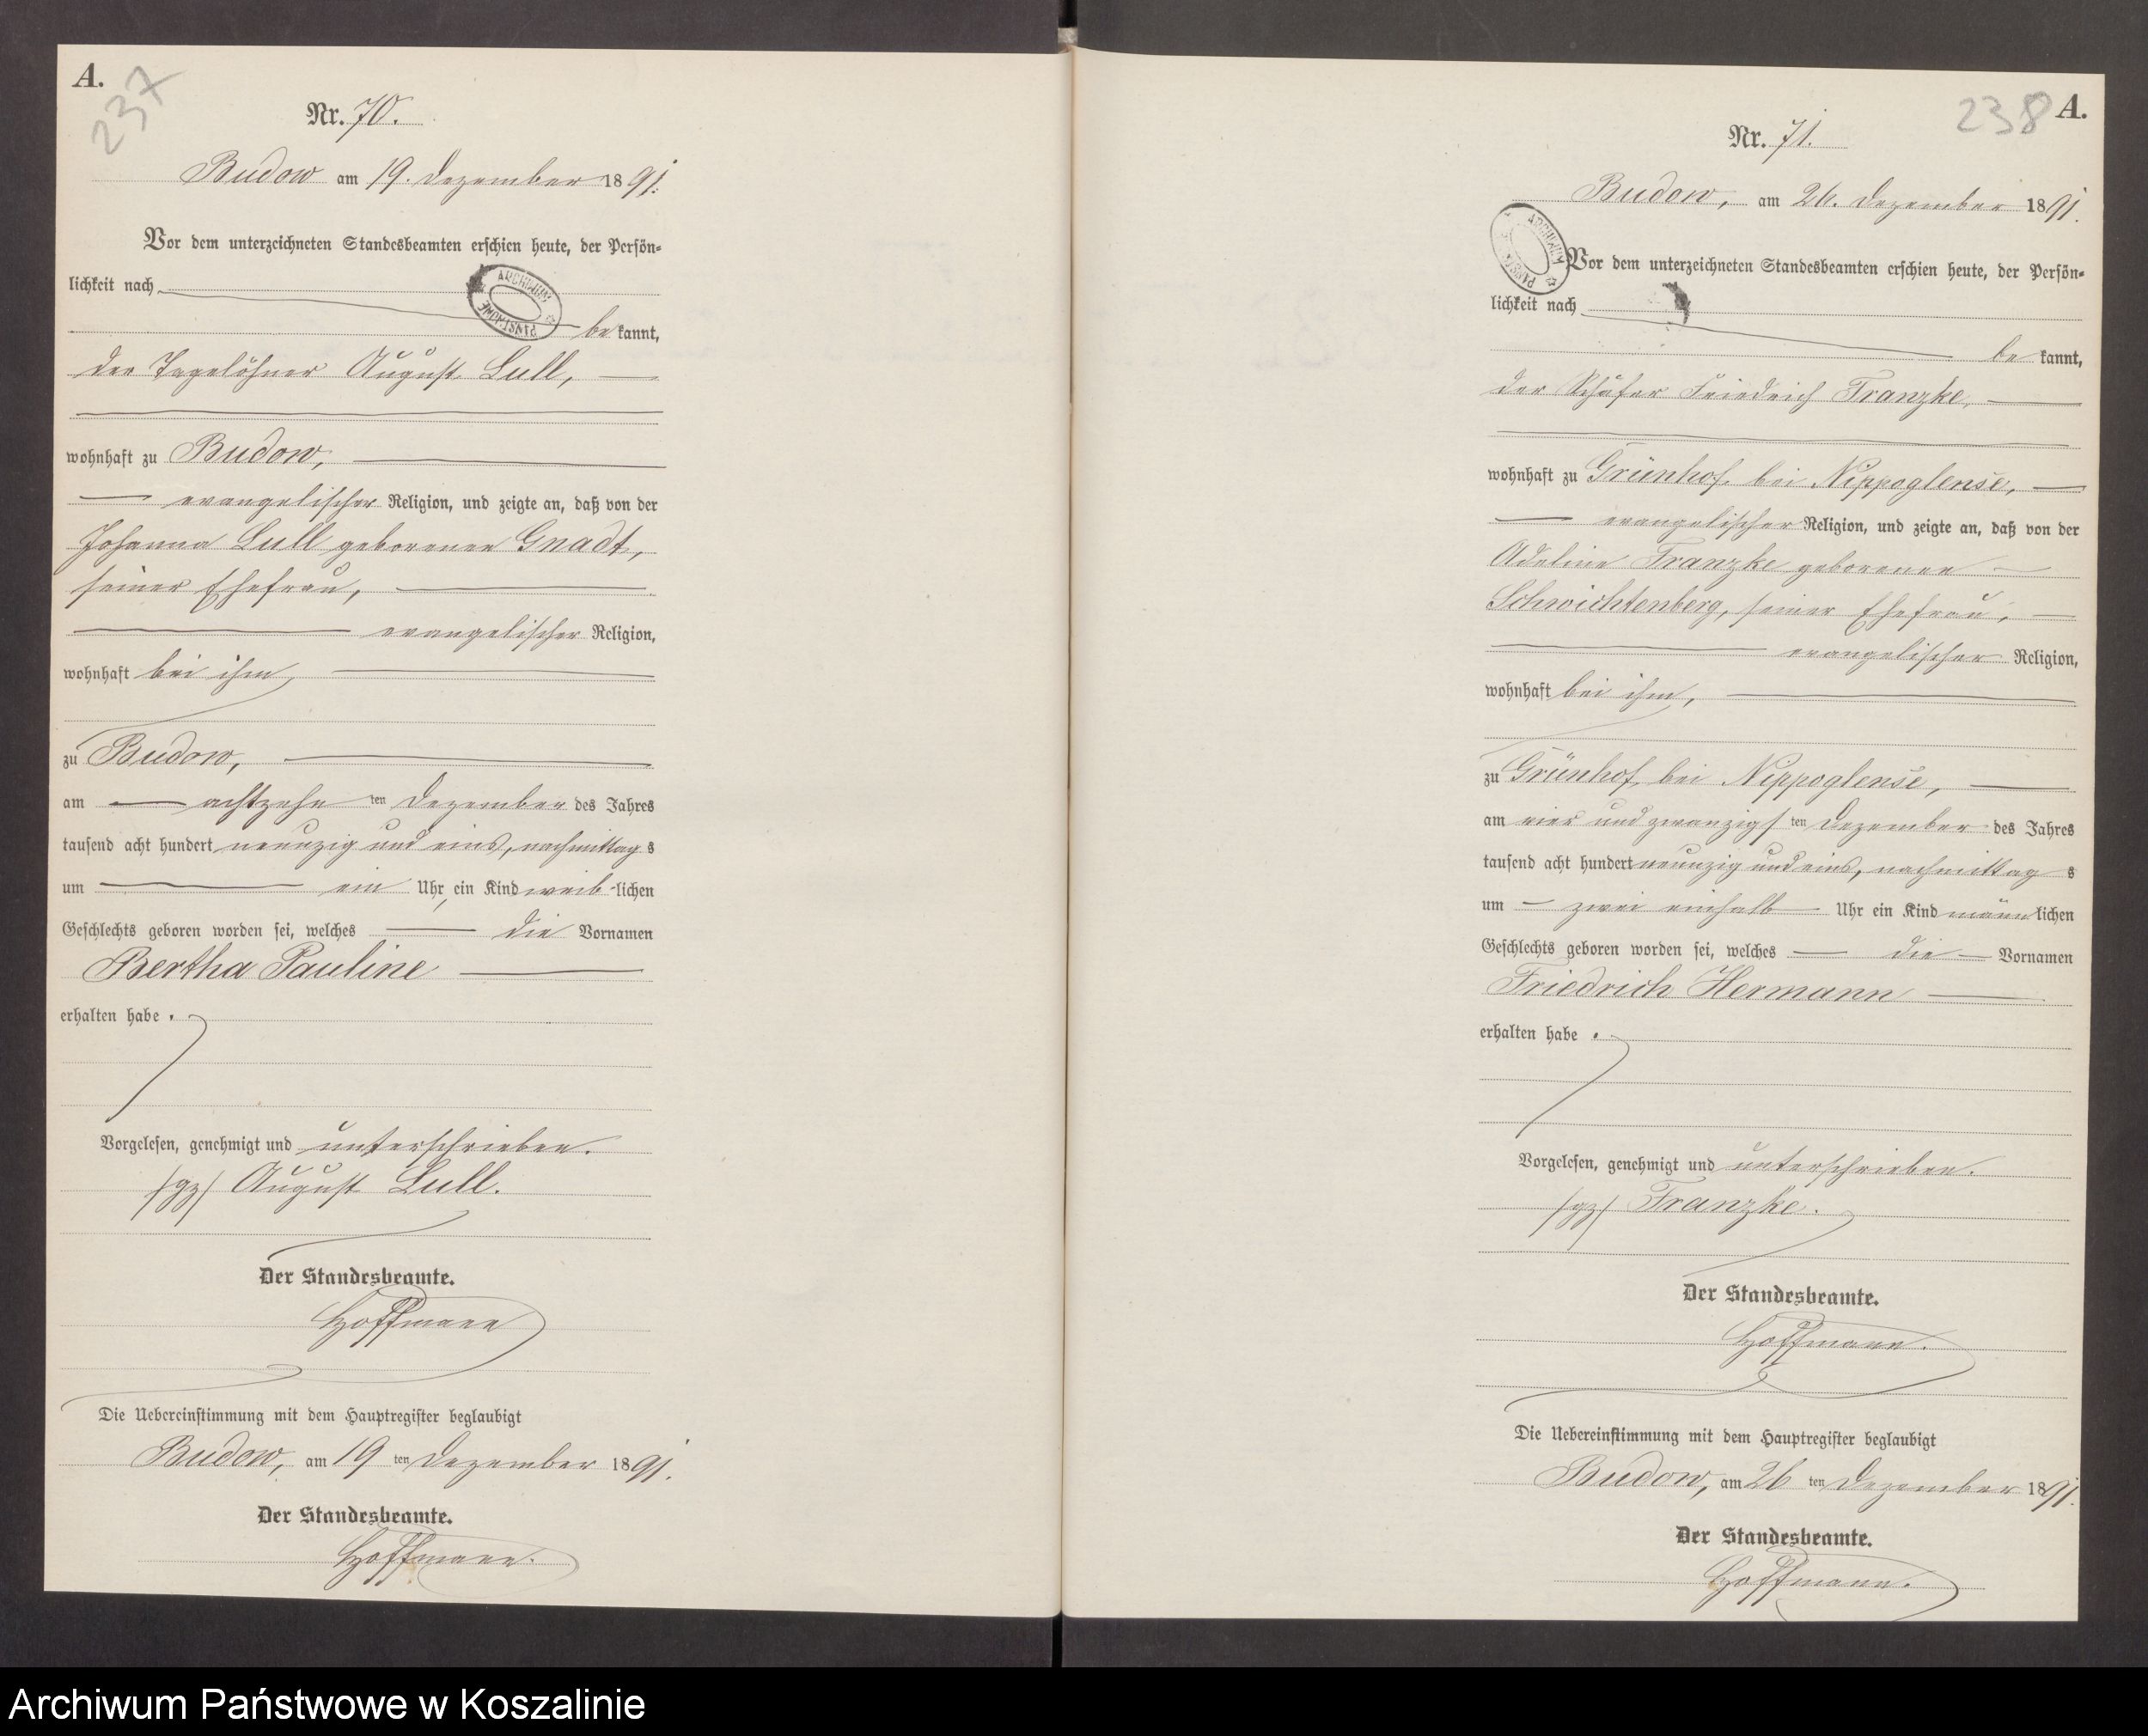 A.
237
Nr. 70.
Budow am 19. Dezember 1891.
Vor dem unterzeichneten Standesbeamten erschien heute, der Persön-
lichkeit nach
ARCHIWUM PAŃSTWOWE
be kannt,
der Tagelöhner August Lull,
wohnhaft zu Budow,
evangelischer Religion, und zeigte an, daß von der
Johanna Lull geborenen Gnadt,
seiner Ehefrau,
evangelischer Religion,
wohnhaft bei ihm,
zu Budow,
am achtzehn ten Dezember des Jahres
tausend acht hundert neunzig und eins, nachmittag s
um ein Uhr, ein Kind weib-lichen
Geschlechts geboren worden sei, welches die Vornamen
Bertha Pauline
erhalten habe.
Vorgelesen, genehmigt und unterschrieben.
/gz/ August Lull.
Der Standesbeamte.
Hoffmann
Die Uebereinstimmung mit dem Hauptregister beglaubigt
Budow, am 19 ten Dezember 1891.
Der Standesbeamte.
Hoffmann.
238 A.
Nr. 71.
Budow, am 26. Dezember 1891.
ARCHIWUM PAŃSTWOWE
Vor dem unterzeichneten Standesbeamten erschien heute, der Persön-
lichkeit nach
be kannt,
der Schäfer Friedrich Franzke,
wohnhaft zu Grünhof bei Nippoglense,
evangelischer Religion, und zeigte an, daß von der
Adeline Franzke geborenen
Schwichtenberg, seiner Ehefrau,
evangelischer Religion,
wohnhaft bei ihm,
zu Grünhof bei Nippoglense,
am vier und zwanzigs ten Dezember des Jahres
tausend acht hundert neunzig und eins, nachmittag s
um zwei einhalb Uhr ein Kind männlichen
Geschlechts geboren worden sei, welches die Vornamen
Friedrich Hermann
erhalten habe.
Vorgelesen, genehmigt und unterschrieben.
/gz/ Franzke.
Der Standesbeamte.
Hoffmann.
Die Uebereinstimmung mit dem Hauptregister beglaubigt
Budow, am 26 ten Dezember 1891.
Der Standesbeamte.
Hoffmann.
Archiwum Państwowe w Koszalinie